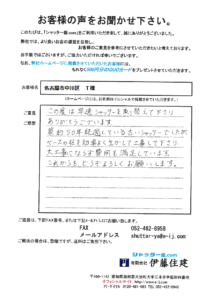 お客様の声をお聞かせ下さい。
このたびは、「シャッター奏.com」をご利用いただきまして、誠にありがとうございました。
弊社では、より良いお店の運営を目指し、
お客様のご意見を参考にさせていただきたいと考えております。
お手数ではございますが、ご協力いただければ幸いでございます。
なお、弊社ホームページに掲載させていただいたお客様には、
もれなく500円分のQUOカードをプレゼントさせていただきます。
お客様名
名古屋市中川区 T様
(ホームページには、お名前はイニシャルで掲載させていただきます。)
ご意見
ご感想
この度は早速シャッターを取り替えて下さり
ありがとうございます。
築約50年経過している古いシャッターでしたが
ケースの形を効率よく生かして工事して下さり
大工事にならず費用も満足しています。
これからも、どうぞよろしくお願いします。
ご返送は、下記FAX番号、または下記メールアドレスにお願い致します。
FAX 052-462-8958
メールアドレス shutter-ya@n-ij.com
シャッター奏.com
有限会社 伊藤住建